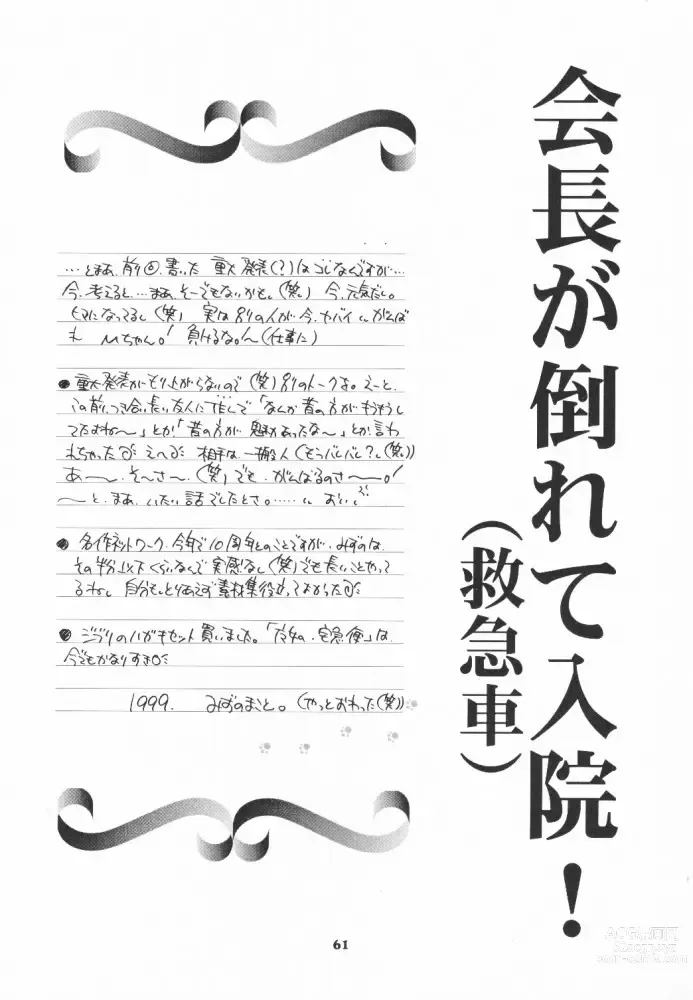 会長が倒れて入院！
（救急車）
…とまあ、前回書いた重大発表(？)はコレなんですが…
今、考えると…まあ、そーでもないかも。(笑。) 今、元気だし。
ヒマになってるし(笑) 実は別の人が今、ヤバイ。がんば
れ Mちゃん。！ 負けるな。！〜(仕事に)
●重大発表がもり上がらないので(笑)別のトークを。えーと、
この前、つき合い長い友人に「なんか昔の方がもうもうし
てたよね〜」とか「昔の方が魅力あったな〜」とか言わ
れちゃった。 えへ。相手は一般人(もうバレバレ？。(笑。))
あー。そーさー。(笑)でも、がんばるのさー。！
〜と、まあ、いたい話でしたとさ。……。おい。
●名作ネットワーク、今年で10周年とのことですが、みずのは、
その半分以下くらいなんで実感なし(笑)でも長いことやって
るねぇ。自分も、とりあえず素材集役立ってよかった
●ジブリのハガキセット買いました。「魔女の宅急便」は、
今でもかなりすき。
1999. みずのまこと。(やっとおわった(笑))
61